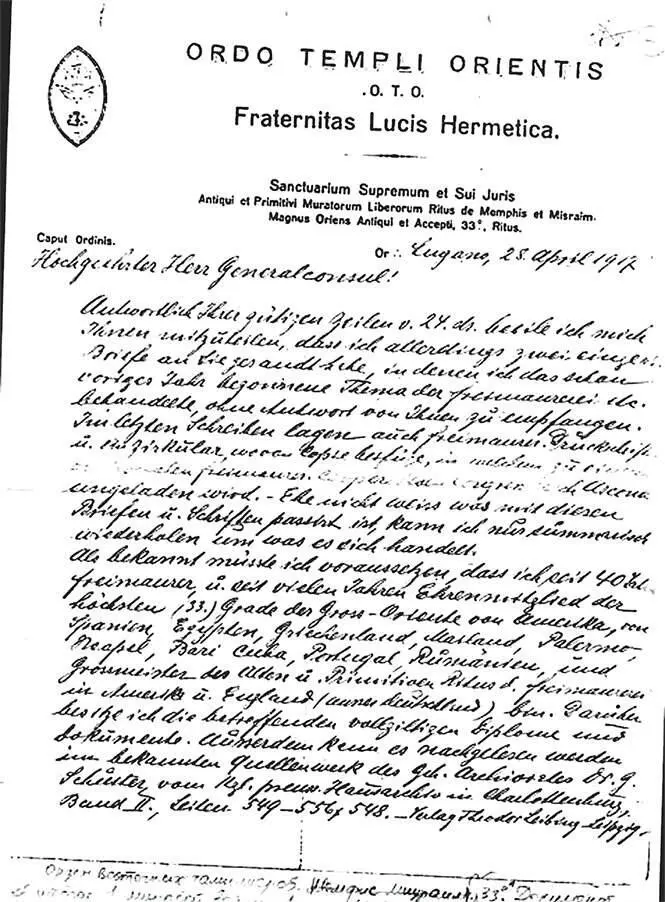 ORDO TEMPLI ORIENTIS
.O. T. O.
Fraternitas Lucis Hermetica.
Sanctuarium Supremum et Sui Juris
Antiqui et Primitivi Muratorum Liberorum Ritus de Memphis et Misraim.
Magnus Oriens Antiqui et Accepti, 33°, Ritus.
Caput Ordinis.
Or ∴ Lugano, 28. April 1917
Hochgeehrter Herr Generalconsul!
Antwortlich Ihrer gütigen Zeilen v. 24. ds. beeile ich mich
Ihnen mitzuteilen, dass ich allerdings zwei
Briefe an Sie gesandt habe, in denen ich das schon
voriges Jahr begonnene Thema der Freimaurerei etc.
behandelte, ohne Antwort von Ihnen zu empfangen.
Im letzten Schreiben lagen auch freimaurer.
u. ein Zirkular, wovon Copie beifüge, in welchem zu
freimaurer. Ascona
eingeladen wird. - Ehe nicht weiss was mit diesen
Briefen u. Schriften passirt ist, kann ich nur summarisch
wiederholen um was es sich handelt.
Als bekannt müsste ich voraussetzen, dass ich, seit 40
Freimaurer, u. seit vielen Jahren Ehrenmitglied der
höchsten (33.) Grade der Gross-Oriente von Amerika, von
Spanien, Egypten, Griechenland, Mailand, Palermo,
Neapel, Bari Cuba, Portugal, Rumänien, und
Grossmeister des Alten u. Primitiven Ritus d. Freimaurerei
in Amerika u. England (ausser Deutschland) bin. Darüber
besitze ich die betreffenden vollgiltigen Diplome und
Dokumente. Ausserdem kann es nachgelesen werden
im bekannten Quellenwerk des Geh. Archivrates Dr. G.
Schuster, vom Kgl. preuss. Hausarchiv in Charlottenburg,
Band II, Seiten 549-556, 548. - Verlag Theodor Leibing Leipzig.
Орден Восточных тамплиеров. Мемфис Мицраим, 33° Документ